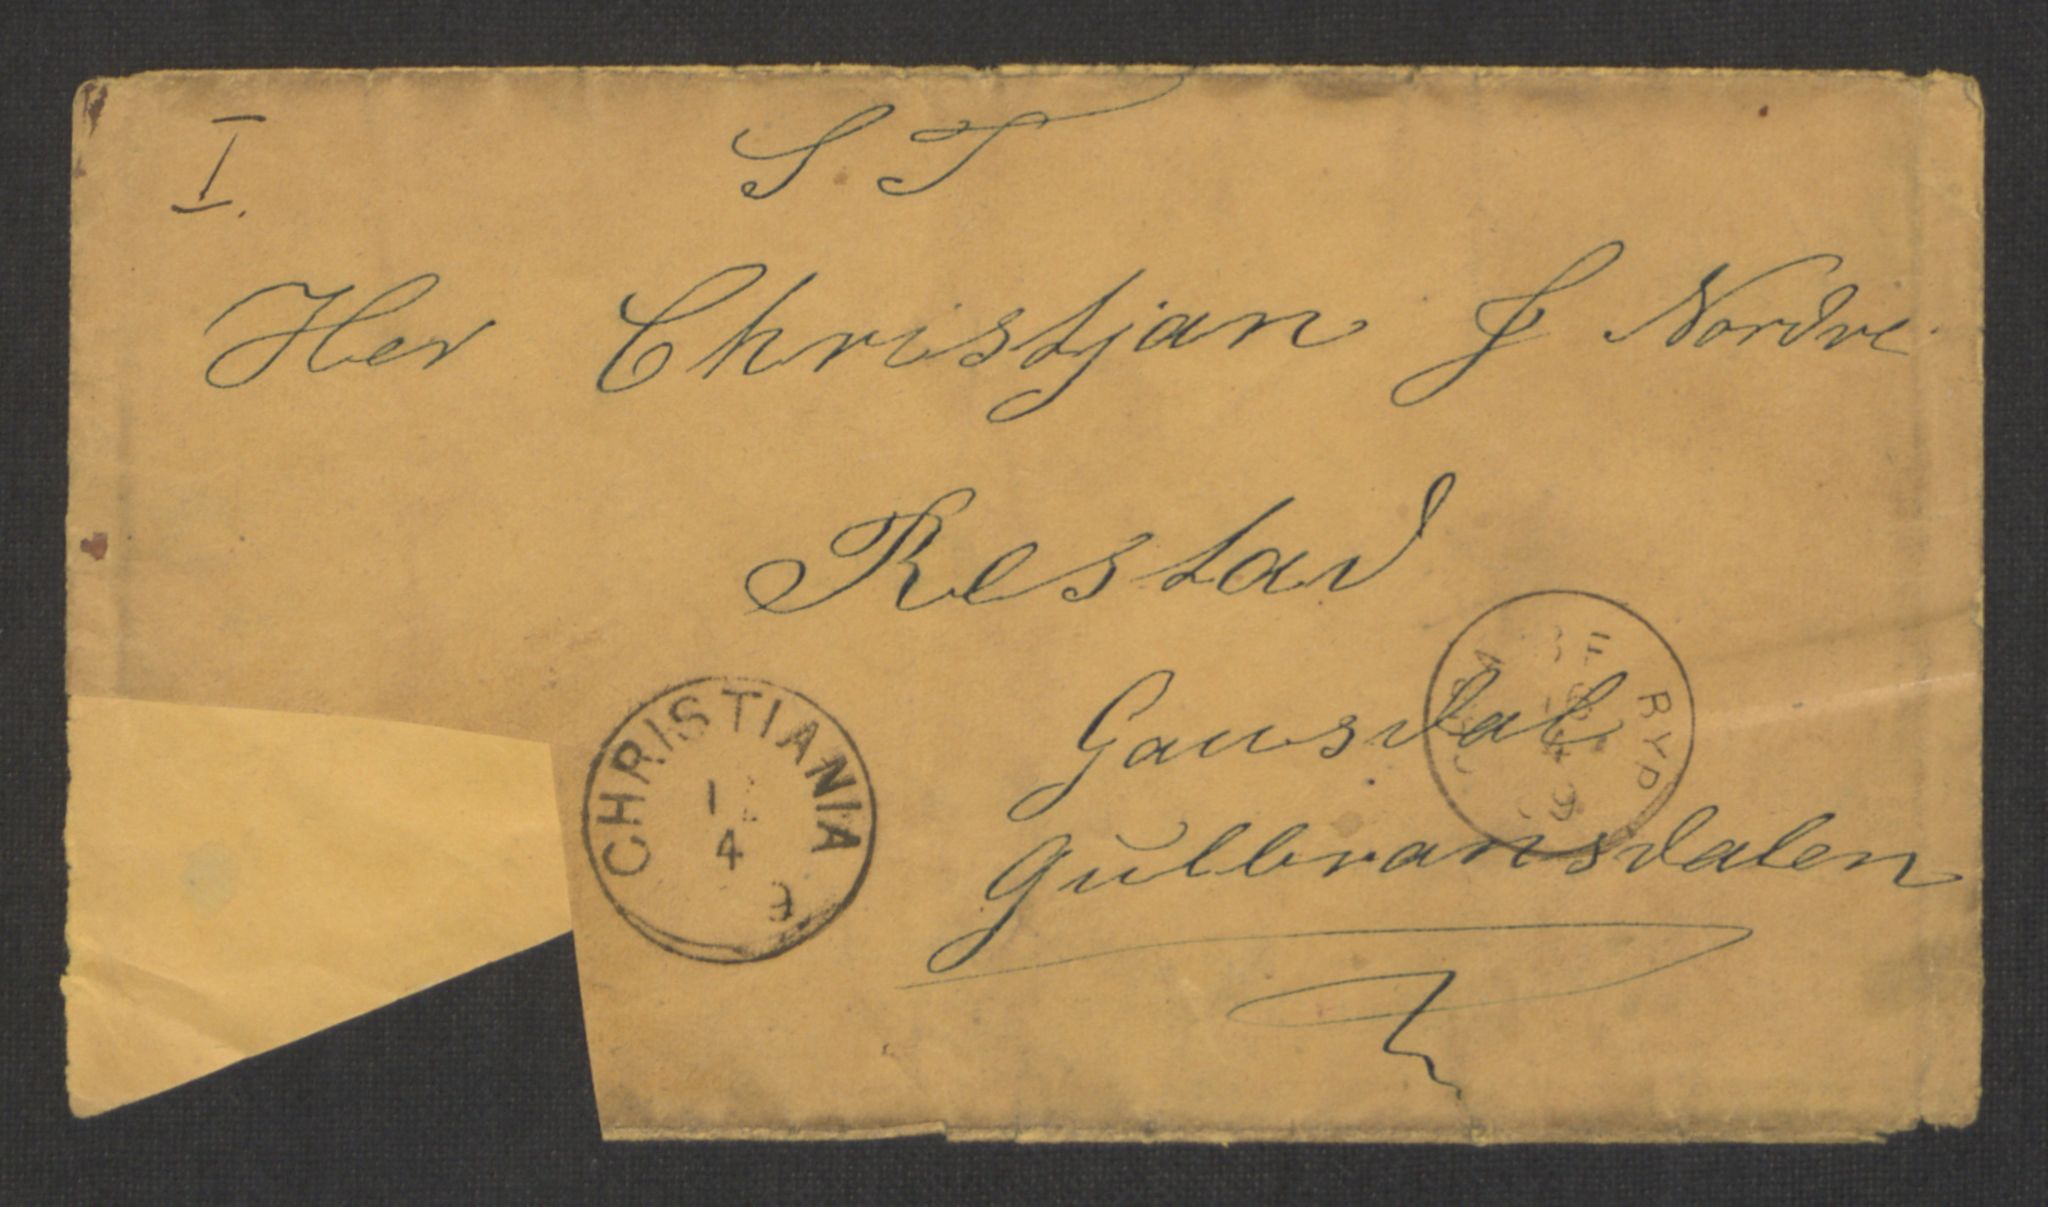 I.
S. T
Her Christjan J Nordre
Restad
Gausdal
Gulbransdalen
CHRISTIANIA
4
9